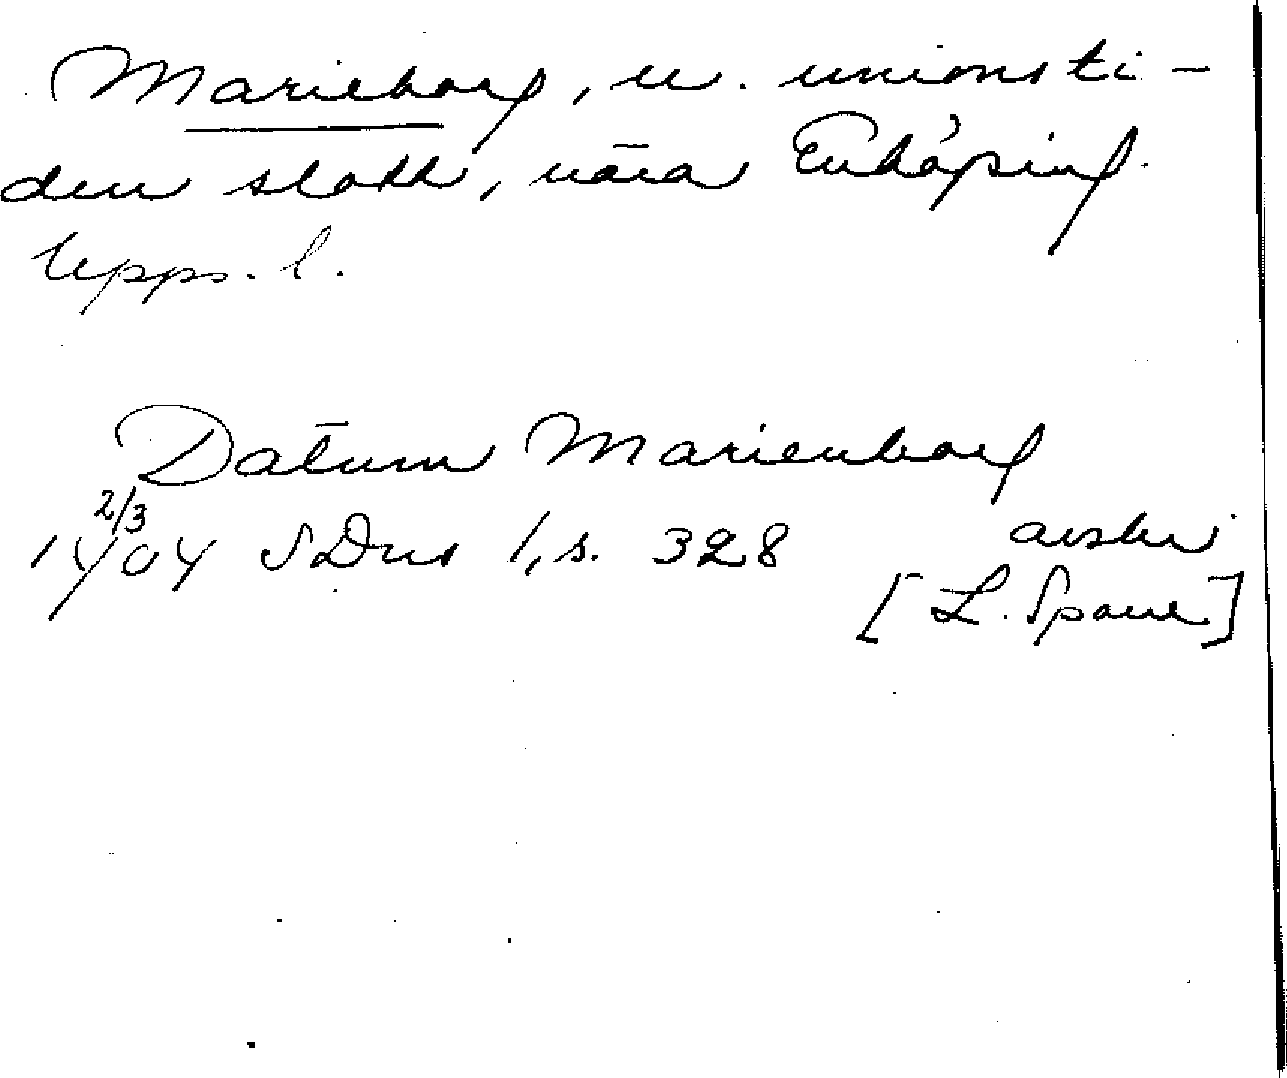 Marieborg, u. unionsti-
den slott, nära Enköping.
Upps. l.
Datum Marienborg
2/3
1404 SDns 1, s. 328 avskr
[L. Sparre]